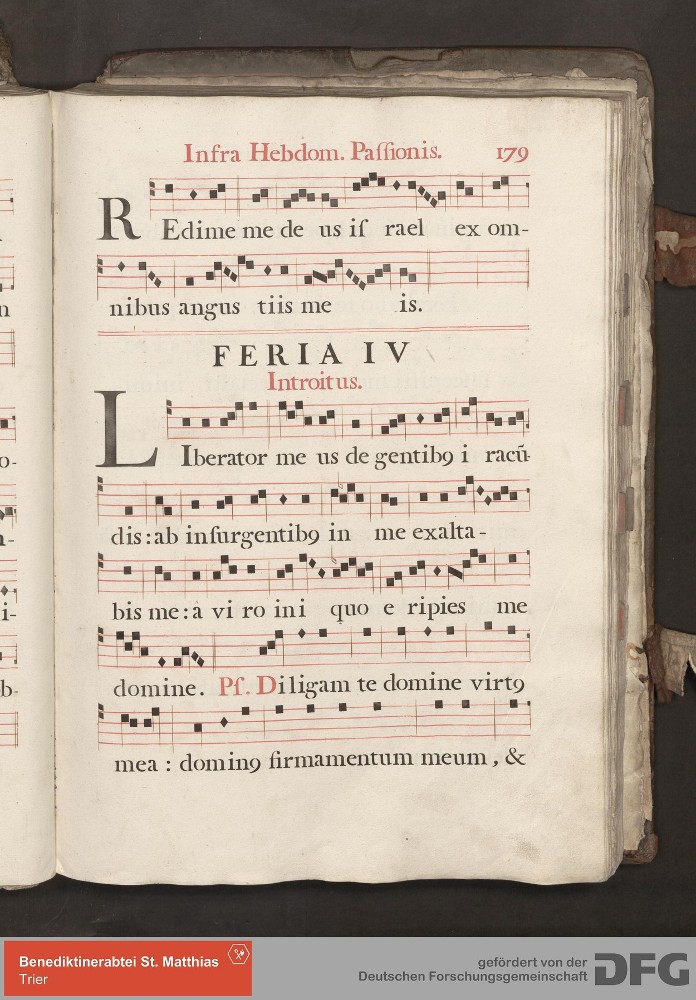 Infra Hebdom. Paſſionis. 179
REdime me de us iſ rael ex om-
nibus angus tiis me is.
FERIA IV
Introitus.
LIberator me us de gentibꝯ i racū-
dis: ab inſurgentibꝯ in me exalta-
bis me: à vi ro ini quo e ripies me
domine. Pſ. Diligam te domine virtꝯ
mea : dominꝯ firmamentum meum, &
n
o-
n-
i-
b-
Benediktinerabtei St. Matthias
Trier
gefördert von der
Deutschen Forschungsgemeinschaft
DFG